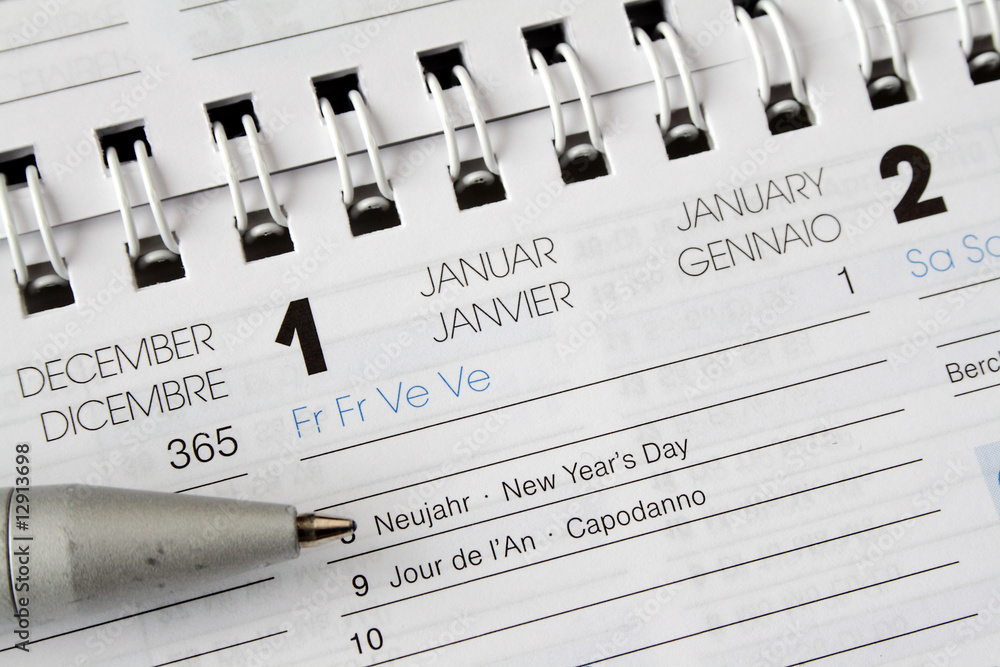 DECEMBER
DICEMBRE
365
1
JANUAR
JANVIER
JANUARY
GENNAIO
1
Fr Fr Ve Ve
8 Neujahr · New Year's Day
9 Jour de l'An · Capodanno
10
2
Sa Sa
Adobe Stock | #12913698
Adobe Stock